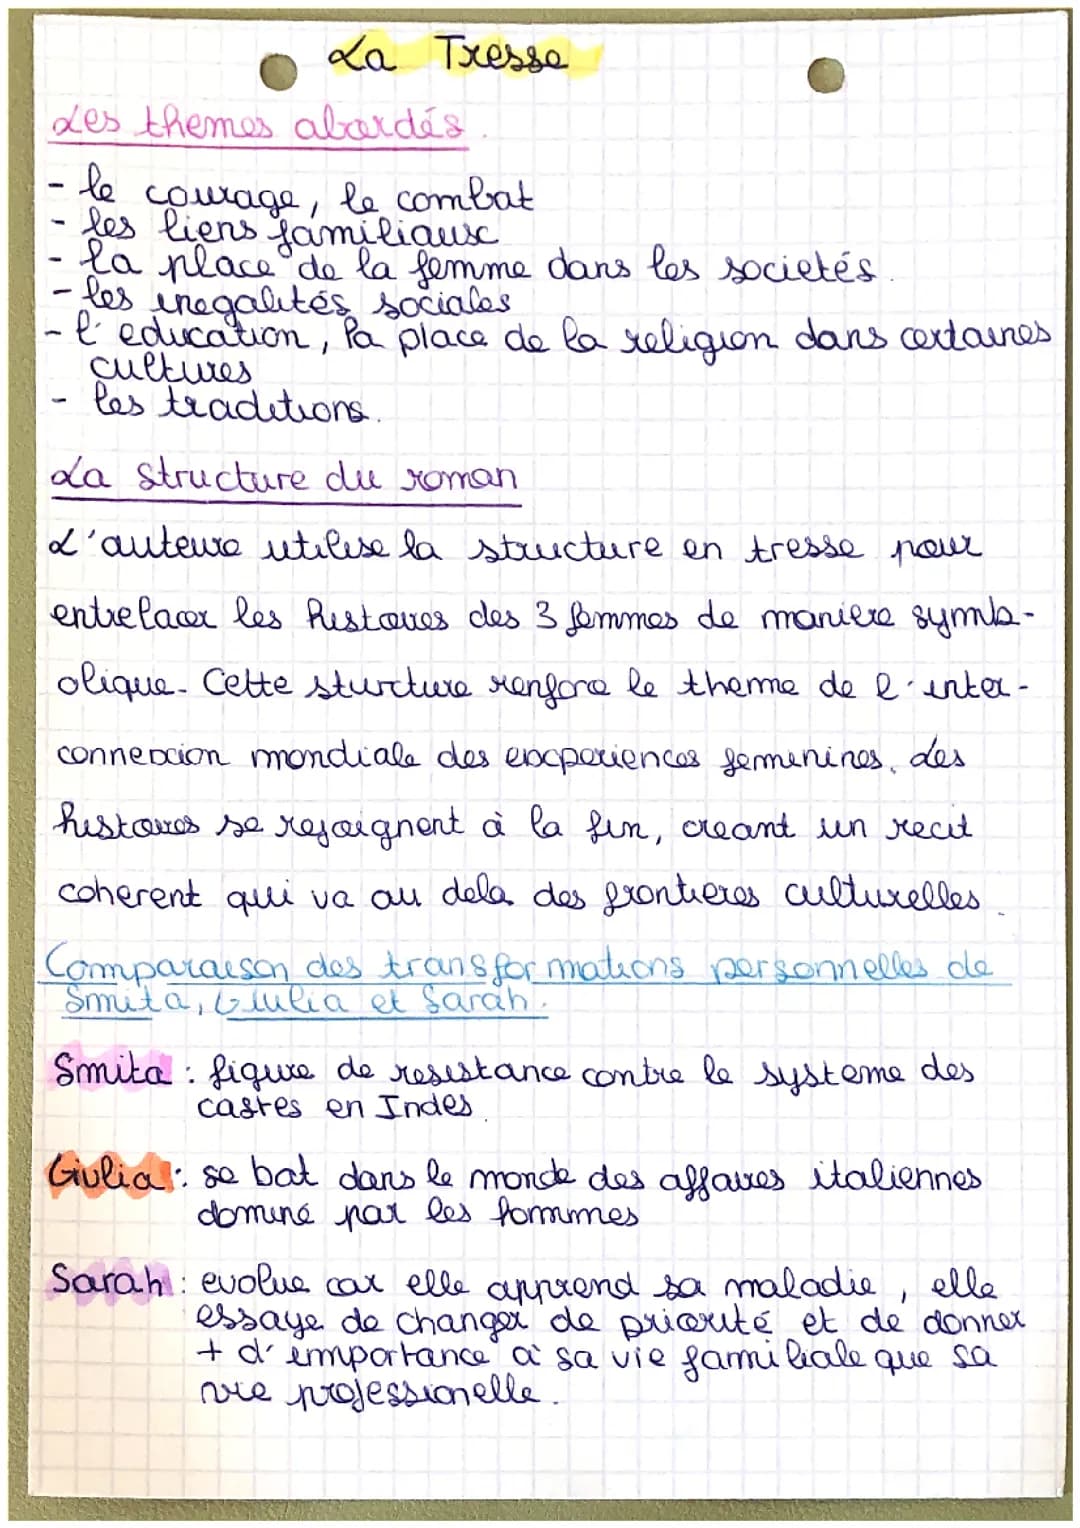 La Tresse
Les themes abordés.
- le courage, le combat
- les liens familiaux
- la place de la femme dans les societés.
- les inegalités sociales
- l'education, la place de la religion dans certaines
cultures
- les traditions.
La structure du roman
L'auteure utilise la structure en tresse pour
entrelacer les histoires des 3 femmes de maniere symb-
olique. Cette sturcture renforce le theme de l'inter-
connexion mondiale des experiences feminines. Les
histoires se rejoignent à la fin, creant un recit
coherent qui va au dela des frontieres culturelles.
Comparaison des transformations personnelles de
Smita, Giulia et Sarah.
Smita : figure de resistance contre le systeme des
castes en Indes.
Giulia : se bat dans le monde des affaires italiennes
dominé par les hommes
Sarah : evolue car elle apprend sa maladie, elle
essaye de changer de priorité et de donner
+ d'importance a sa vie familiale que sa
vie professionelle.